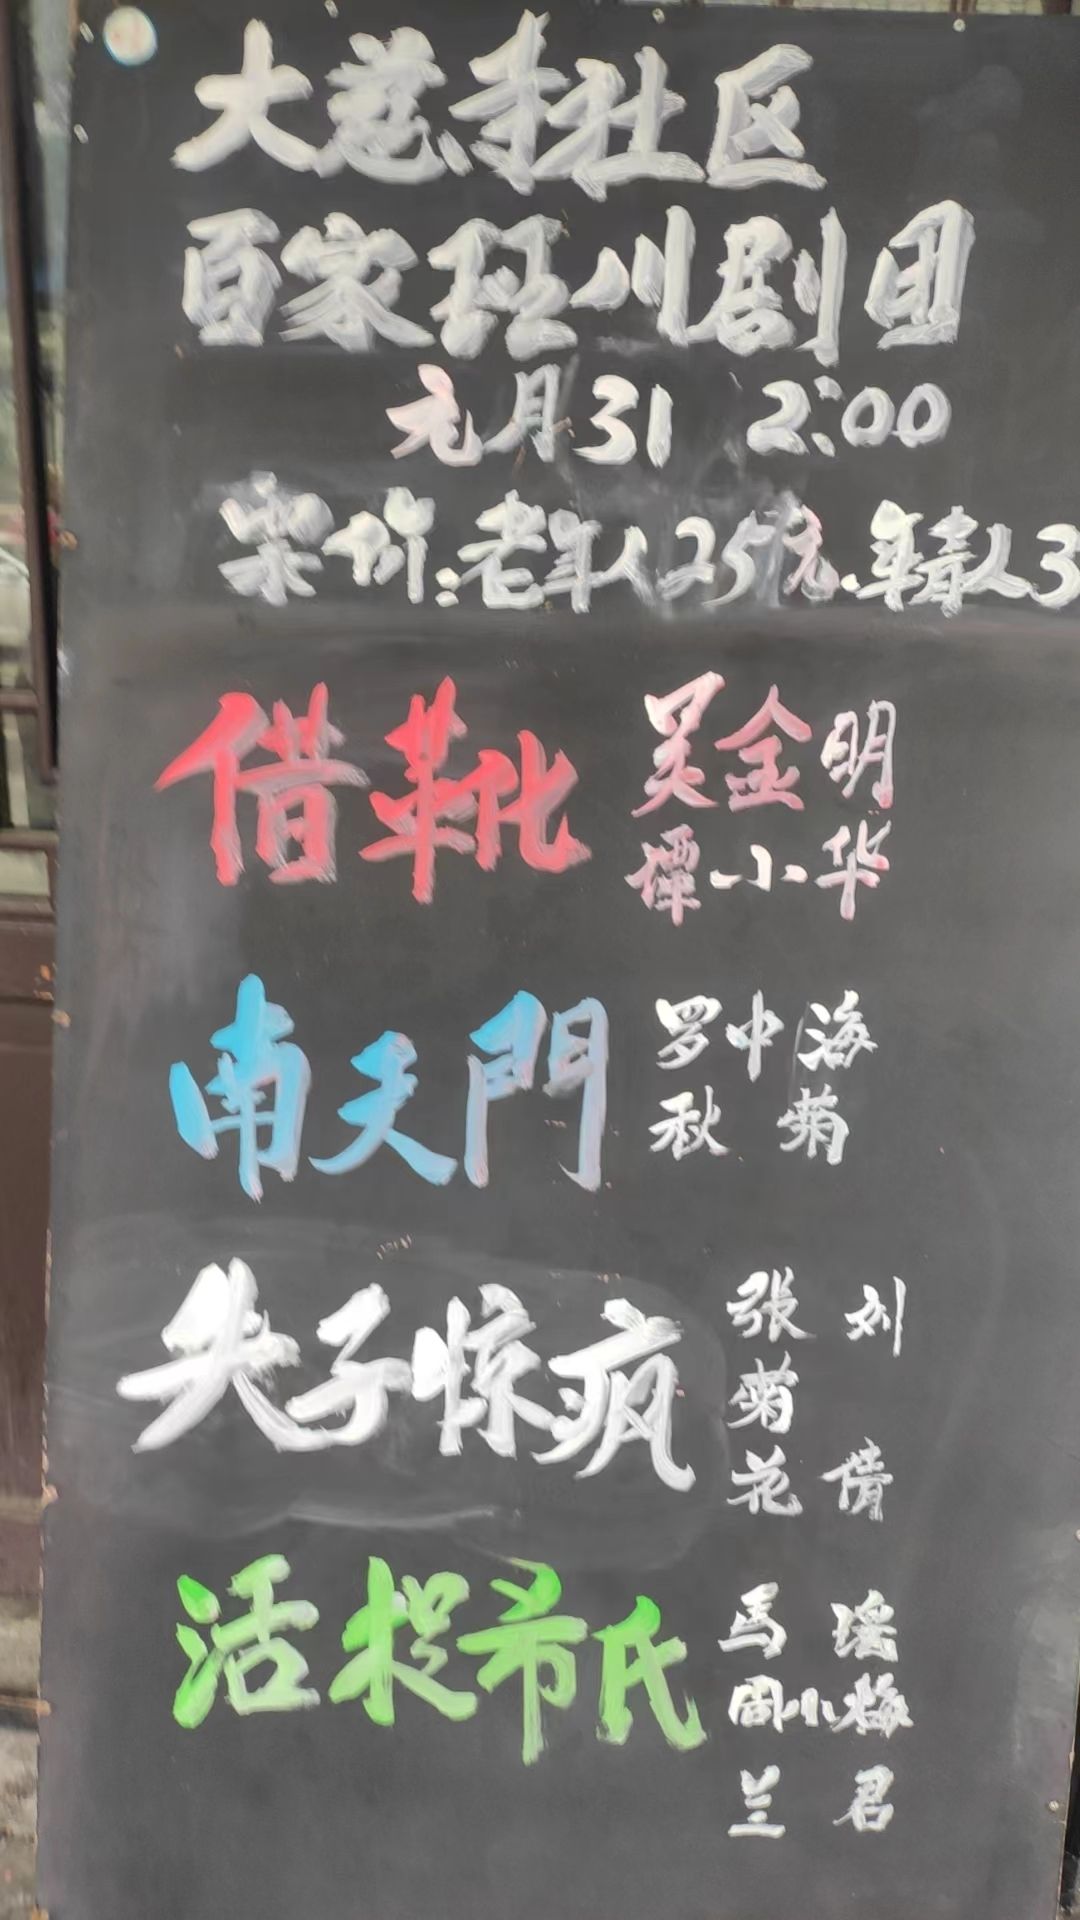 大慈寺社区
百家班川剧团
元月31 2:00
票价:老年人25元.年青人3
借靴 吴金明
谭小华
南天門 罗中海
秋菊
失子惊疯 张菊花 刘倩
活捉希氏 马瑶
周小梅
兰君